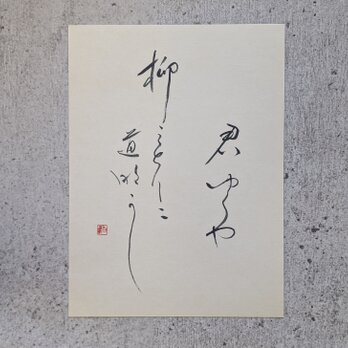 君ゆくや
柳みどりに
道長し